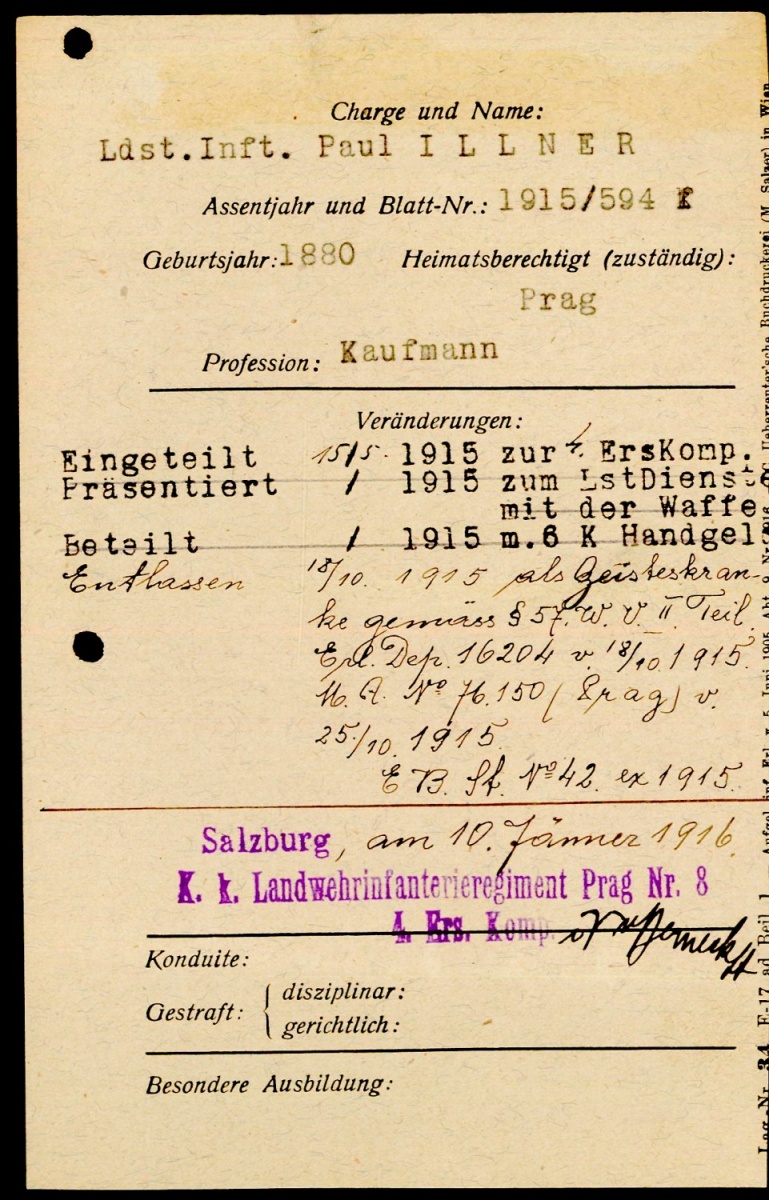 Charge und Name:
Ldst.Inft. Paul I L L N E R
Assentjahr und Blatt-Nr.: 1915/594 f
Geburtsjahr: 1880 Heimatsberechtigt (zuständig):
Prag
Profession: Kaufmann
Veränderungen:
Eingeteilt 15/5. 1915 zur 4. ErsKomp.
Präsentiert / 1915 zum LstDienste
mit der Waffe
Beteilt / 1915 m.6 K Handgel
Entlassen 18/10. 1915 als Geisteskran-
ke gemäss § 57. W. V. II. Teil
Erl. Dep. 16204 v. 18/10. 1915.
M. A. No 76.150 (Prag) v.
25/10. 1915.
E B. St. No 42. ex 1915.
Salzburg, am 10. Jänner 1916.
K. k. Landwehrinfanterieregiment Prag Nr. 8
4. Ers. Komp.
Konduite:
Gestraft: { disziplinar:
gerichtlich:
Besondere Ausbildung:
Lag.-Nr. 34 E-17 ad Beil. 1.